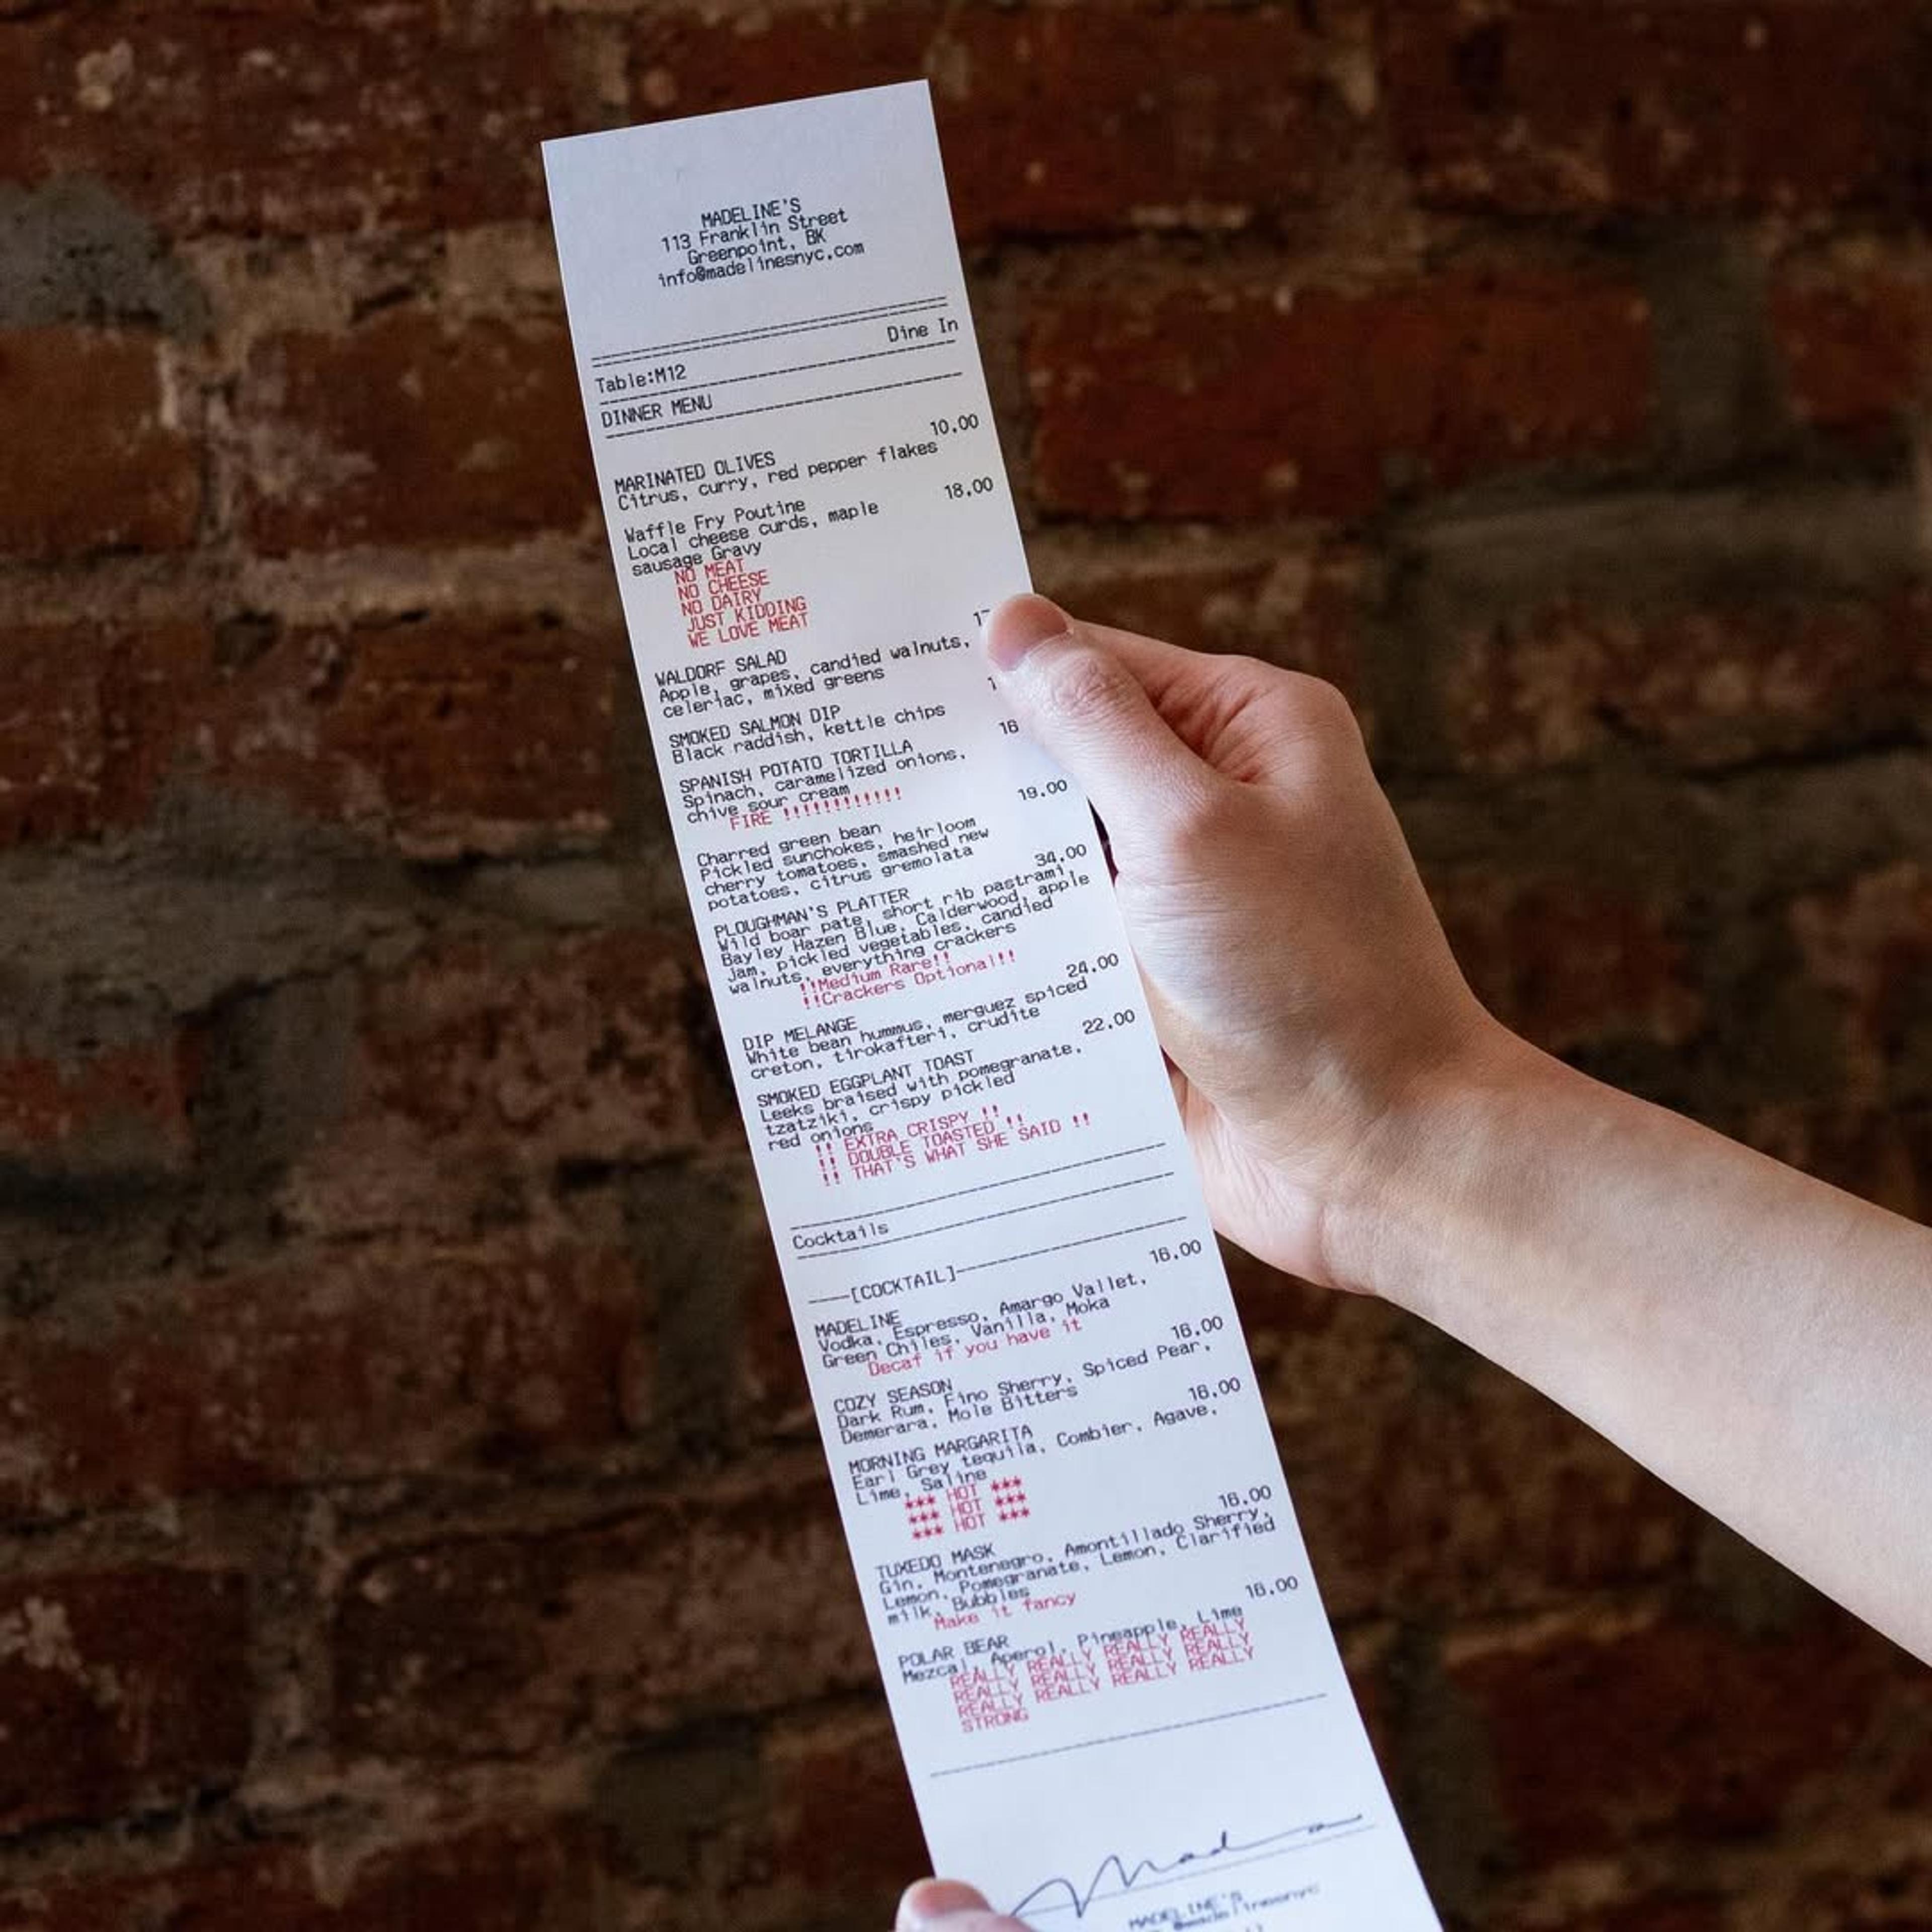 MADELINE'S
113 Franklin Street
Greenpoint, BK
info@madelinesnyc.com
Table:M12 Dine In
DINNER MENU
MARINATED OLIVES 10.00
Citrus, curry, red pepper flakes
Waffle Fry Poutine 18.00
Local cheese curds, maple
sausage Gravy
NO MEAT
NO CHEESE
NO DAIRY
JUST KIDDING
WE LOVE MEAT
WALDORF SALAD
Apple, grapes, candied walnuts,
celeriac, mixed greens
SMOKED SALMON DIP
Black raddish, kettle chips
SPANISH POTATO TORTILLA 16
Spinach, caramelized onions,
chive sour cream
FIRE !!!!!!!!!!!!
Charred green bean 19.00
Pickled sunchokes, heirloom
cherry tomatoes, smashed new
potatoes, citrus gremolata
PLOUGHMAN'S PLATTER 34.00
Wild boar pate, short rib pastrami,
Bayley Hazen Blue, Calderwood, apple
jam, pickled vegetables, candied
walnuts, everything crackers
!!Medium Rare!!
!!Crackers Optional!!
DIP MELANGE 24.00
White bean hummus, merguez spiced
creton, tirokafteri, crudite
SMOKED EGGPLANT TOAST 22.00
Leeks braised with pomegranate,
tzatziki, crispy pickled
red onions
!! EXTRA CRISPY !!
!! DOUBLE TOASTED !!
!! THAT'S WHAT SHE SAID !!
Cocktails
----[COCKTAIL]----
MADELINE 16.00
Vodka, Espresso, Amargo Vallet,
Green Chiles, Vanilla, Moka
Decaf if you have it
COZY SEASON 16.00
Dark Rum, Fino Sherry, Spiced Pear,
Demerara, Mole Bitters
MORNING MARGARITA 16.00
Earl Grey tequila, Combier, Agave,
Lime, Saline
*** HOT ***
*** HOT ***
*** HOT ***
TUXEDO MASK 16.00
Gin, Montenegro, Amontillado Sherry,
Lemon, Pomegranate, Lemon, Clarified
milk, Bubbles
Make it fancy
POLAR BEAR 16.00
Mezcal, Aperol, Pineapple, Lime
REALLY REALLY REALLY REALLY
REALLY REALLY REALLY REALLY
REALLY REALLY REALLY REALLY
STRONG
MADELINE'S